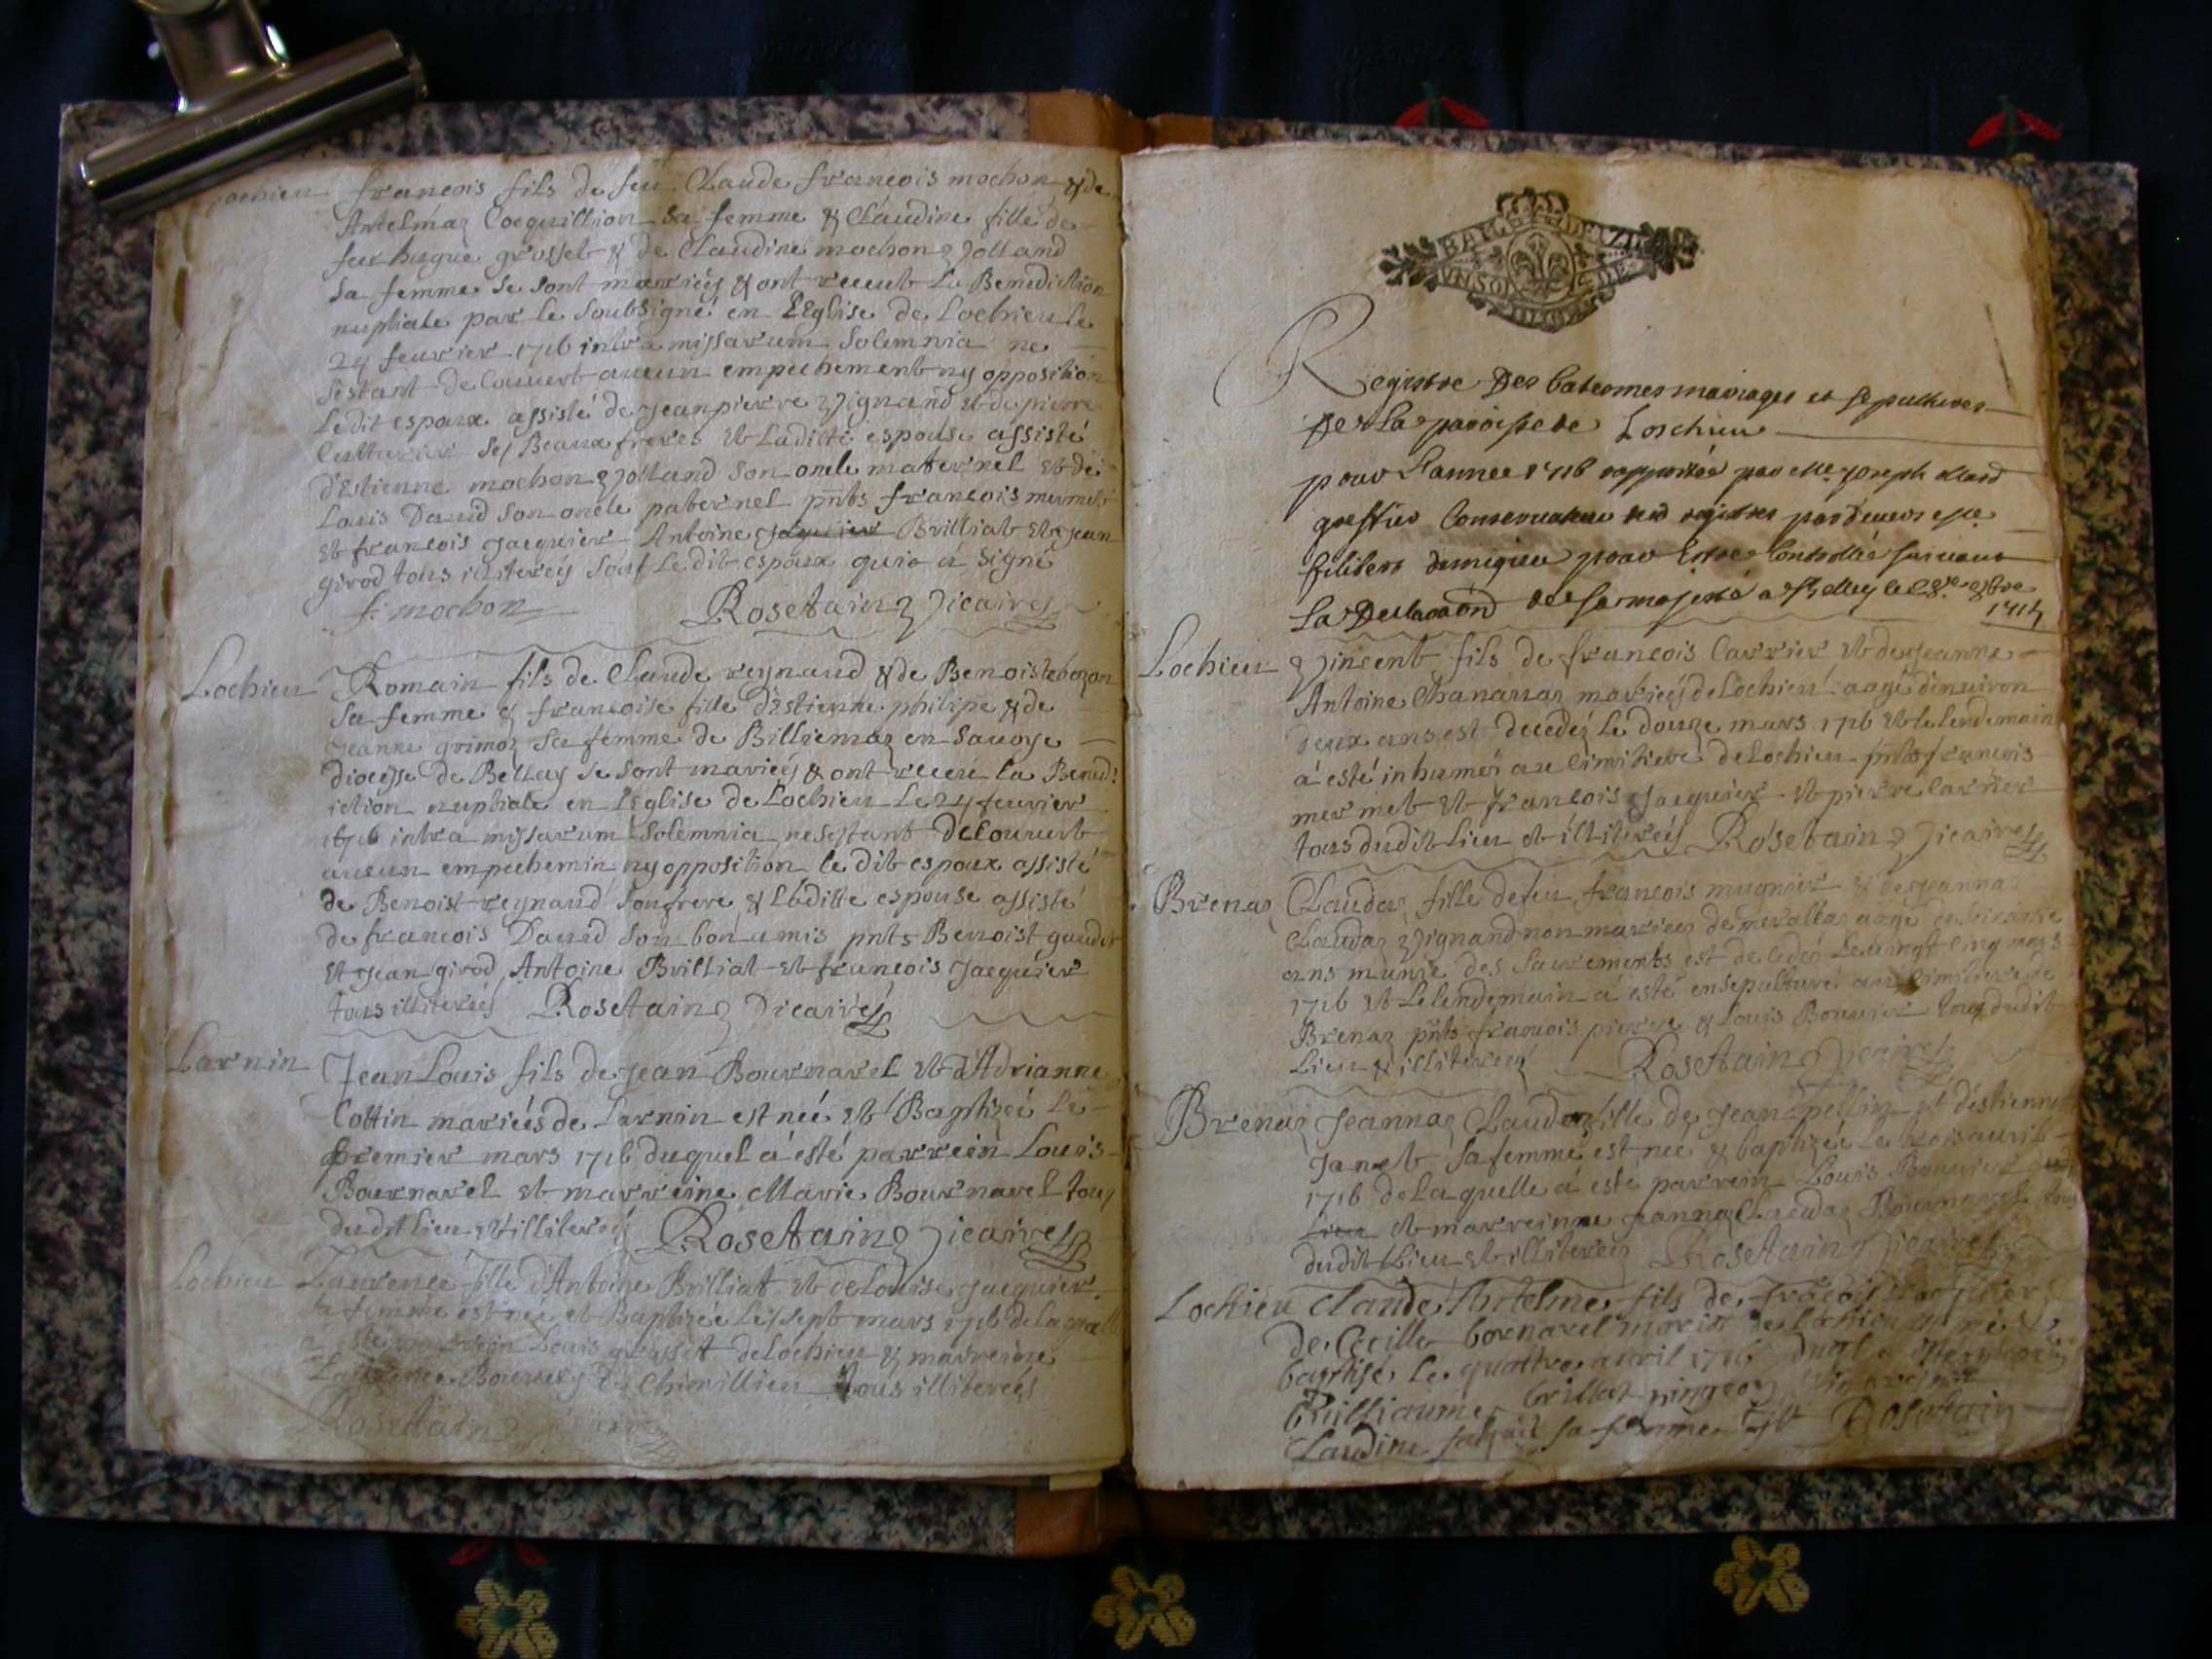 Lochieu francois fils de feu Claude francois mochon & de
Antelmaz Cocquillion sa femme & Claudine fille de
feu hugue grosset & de Claudine mochon Jolland
sa femme se sont mariéz & ont receut la Benediction
nuptiale par le soubsigné en L'Eglise de Lochieu le
24 feuvrier 1716 intra missarum solemnia ne
sestant de Couvert aucun empechement ny opposition
ledit espoux assisté de Jean pierre Vignand et de pierre
ses Beaux freres et ladicte espouse assisté
d'Estienne mochon Jolland son oncle maternel et de
Louis David son oncle paternel pnts francois mermet
et francois Jacquier Antoine Jaquier Brilliat et Jean
girod tous illiteréz sauf le dit espoux qui a signé
f. mochon Rosetain Vicaire
Lochieu Romain fils de Claude reynaud & de Benoiste bozon
sa femme & francoise fille d'Estienne philipe & de
Jeanne grimoz sa femme de Billiemaz en Savoye
diocesse de Bellay se sont mariéz & ont receu la Bened:
iction nuptiale en l'Eglise de Lochieu le 24 feuvrier
1716 intra missarum Solemnia nesestant deCouvert
aucun empechemin ny opposition le dit espoux assisté
de Benoist reynaud son frere & Laditte espouse assisté
de francois David son bon amis pnts Benoist gaudet
et Jean girod Antoine Brilliat et francois Jacquier
tous illiteréz Rosetain Vicaire
Larnin Jean Louis fils de Jean Bournavel et d'Adrianne
Cottin mariés de Larnin est neé et Baptizeé le
premier mars 1716 duquel á esté parrein Louis
Bournavel et marreine Marie Bournavel tous
dudit lieu et illiteréz Rosetain Vicaire
Lochieu Laurence fille d'Antoine Brilliat et de Louise Jacquier
sa femme est neé et Baptizeé le sept mars 1716 de laquelle
a esté parrein Louis grosset de Lochieu & marreine
Laurence de Chimillieu tous illiteréz
Rosetain Vicaire
BAIL DE LYON
UN SOL DE
Registre Des batesmes mariages et sepultures
De La paroisse de Lochieu
pour L'annee 1716 rapportée par Me Joseph
greffier Conservateur des registres par devers
filibert demigieu pour Estre Controllée suivant
La Declaraon de sa majesté a Belley le
Lochieu Vincent fils de francois Carrier et de Jeanne
Antoine Chanavaz mariéz de Lochieu aagé d'environ
deux ans est decedéz le douze mars 1716 et le lendemain
á esté inhuméz au Cimitiere de Lochieu pnts francois
mermet et francois Jacquier et pierre Carrier
tous dudit Lieu et illiteréz Rosetain Vicaire
Brenaz Claudaz fille de feu francois mugnier & de Jeanna
Claudaz Vignand non mariéz de aagé de soixante
ans munie des Sacrements est decedéz le vingt cinq mars
1716 et le lendemain á esté ensepulturé au Cimitiere de
Brenaz pnts francois pierre & Louis Bouvier tous dudit
Lieu & illiteréz Rosetain Vicaire
Brenaz Jeannaz Claudaz fille de Jean pellin et d'Estiennaz
Janet sa femme est neé & baptizée le trois avril
1716 de Laquelle á esté parrein Louis Bouvier
Lieu et marreinne Jeanna Claudaz tous
dudit Lieu et illiteréz Rosetain Vicaire
Lochieu Claude Antelme fils de francois
de Cecille bornavel mariéz de Lochieu est né &
baptisé le quattre avril 1716
Guilliaume brillat pingeon
Claudine sa femme Rosetain